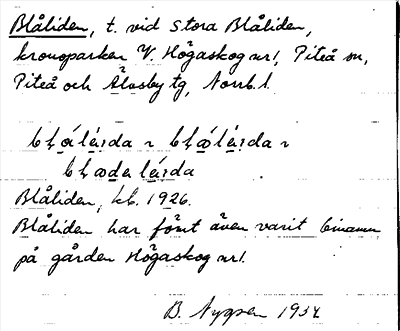 Blåliden, t. vid Stora Blåliden,
kronoparken V. Högaskog nr 1, Piteå sn,
Piteå och Älvsby tg, Norrb. l.
Blåliden, kb. 1926.
Blåliden har förut även varit binamn
på gården Högaskog nr 1.
B. Nygren 1934